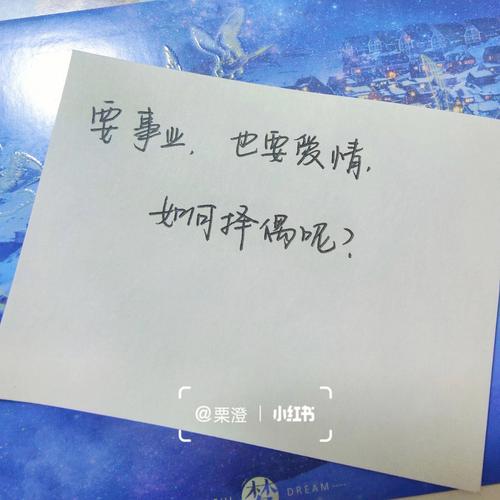 要事业，也要爱情，
如何择偶呢？
@栗澄 | 小红书
梦
DREAM